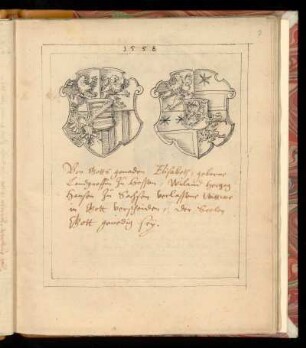 1558
Von Gotts gnaden Elisabett, geborne
Landgreffin zu Hessen, Weiland herzog
Hansen zu Sachsen verlassene Wittwe
in Gott verscheiden, der Seelen
Gott gnedig sey.